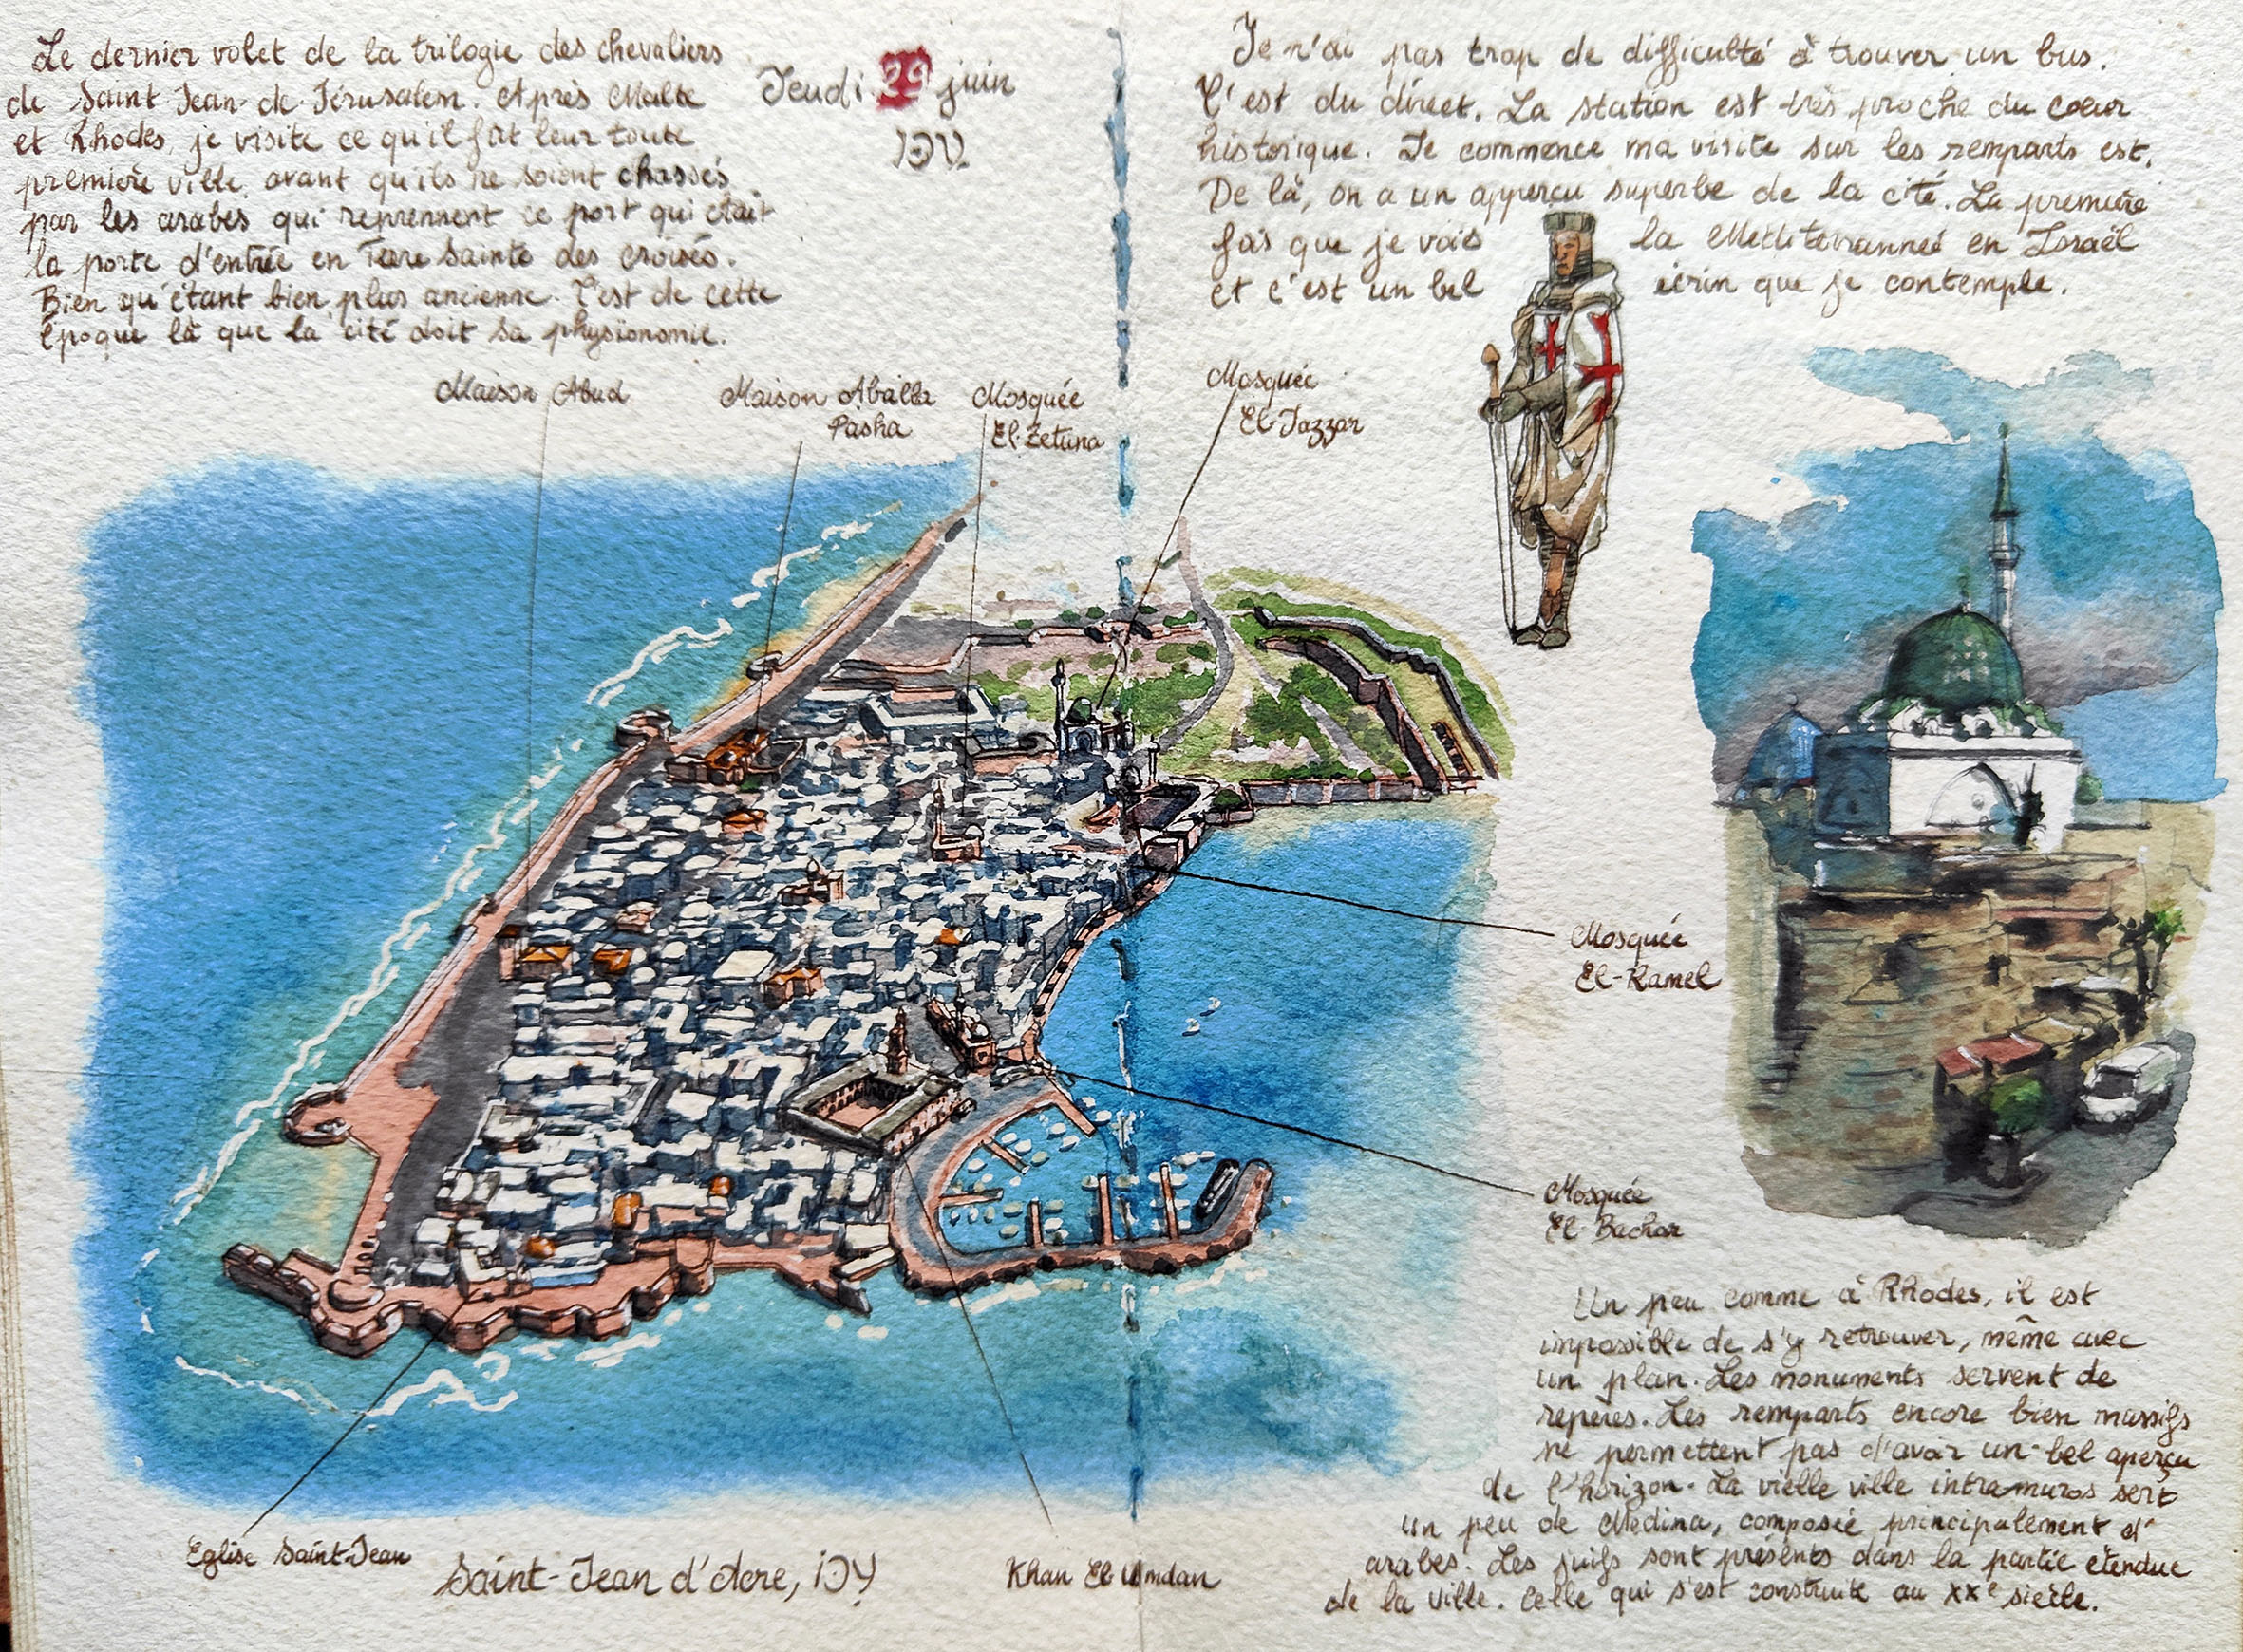 Le dernier volet de la trilogie des chevaliers
de Saint Jean-de-Jérusalem. Après Malte
et Rhodes, je visite ce qu'il fût leur toute
première ville, avant qu'ils ne soient chassés
par les arabes qui reprennent ce port qui était
la porte d'entrée en Terre Sainte des croisés.
Bien qu'étant bien plus ancienne. C'est de cette
époque là que la cité doit sa physionomie.
Jeudi 29 juin
עכו
Je n'ai pas trop de difficulté à trouver un bus.
C'est du direct. La station est très proche du cœur
historique. Je commence ma visite sur les remparts est.
De là, on a un apperçu superbe de la cité. La première
fois que je vois la Méditerrannée en Israël
et c'est un bel écrin que je contemple.
Maison Abud
Maison Aballa
Pasha
Mosquée
El-Zetuna
Mosquée
El-Jazzar
Mosquée
El-Ramel
Mosquée
El-Bachar
Eglise Saint-Jean
Saint-Jean d'Acre, עכו
Khan El-Umdan
Un peu comme à Rhodes, il est
impossible de s'y retrouver, même avec
un plan. Les monuments servent de
repères. Les remparts encore bien massifs
ne permettent pas d'avoir un bel aperçu
de l'horizon. La vielle ville intramuros sert
un peu de Médina, composée principalement d'
arabes. Les juifs sont présents dans la partie étendue
de la ville. Celle qui s'est construite au XXe siècle.